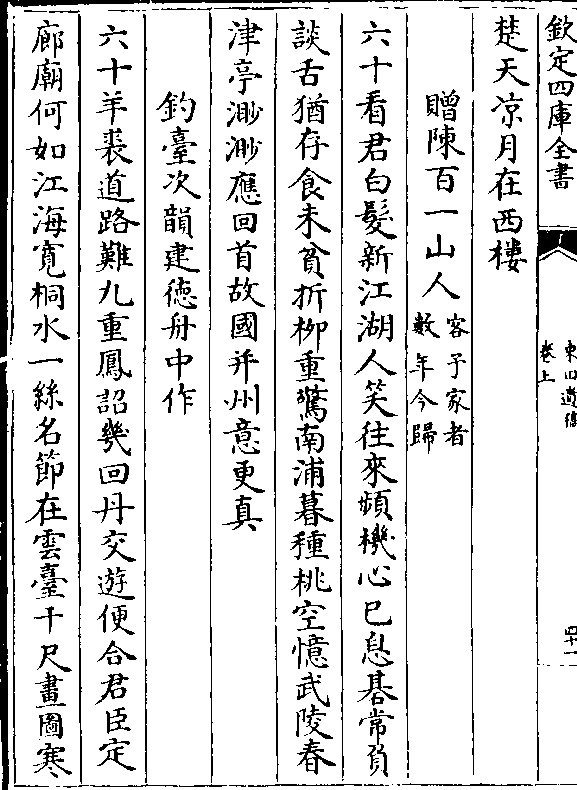 欽定四庫全書
東田遺稿
卷上
四十一
楚天凉月在西樓
贈陳百一山人
客予家者
數年今歸
六十看君白髮新江湖人笑往來頻機心已息棊常負
談舌猶存食未貧折柳重驚南浦暮種桃空憶武陵春
津亭渺渺應回首故國并州意更真
釣臺次韻建德舟中作
六十羊裘道路難九重鳳詔幾回丹交遊便合君臣定
廊廟何如江海寛桐水一絲名節在雲臺千尺畫圖寒